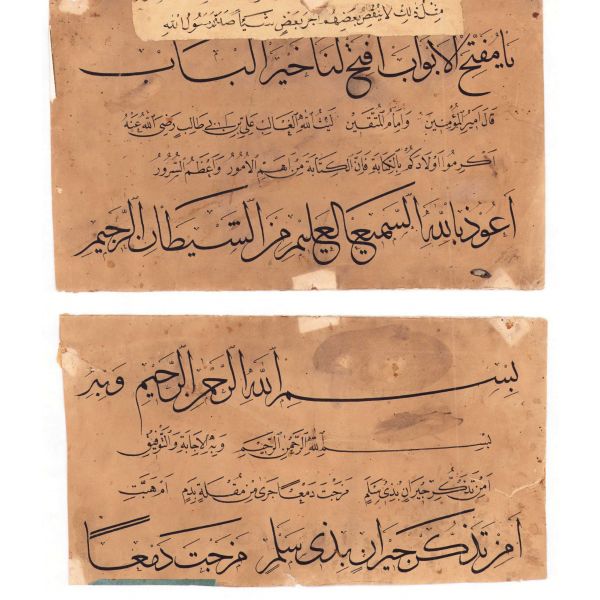 مثله ذلك لا ينقص بعضهم اجر بعض شيأ صدق رسول الله
يا مفتح الابواب افتح لنا خير الباب
قال امير المؤمنين وامام المتقين ليث الله الغالب علي بن ابي طالب رضى الله عنه
اكرموا اولادكم بالكتابة فان الكتابة من اهم الامور واعظم السرور
اعوذ بالله السميع العليم من الشيطان الرجيم
بسم الله الرحمن الرحيم وبه
بسم الله الرحمن الرحيم وبه الاجابة والتوفيق
امن تذكر جيران بذى سلم مزجت دمعا جرى من مقلة بدم ام هبت
امن تذكر جيران بذى سلم مزجت دمعا